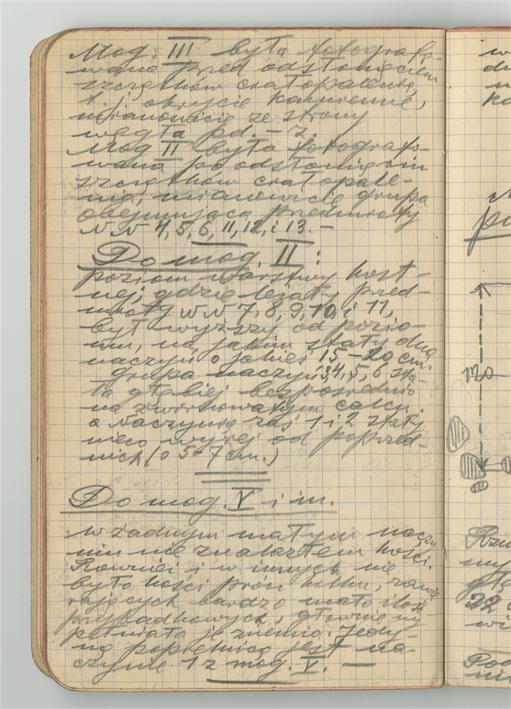 Mog. III była fotografo-
wana przed odsłonięciem
szczątków ciałopalenia,
t. j. obrycie kamienne,
mianowicie ze strony
węgła pd. - z.
Mog II była fotografo-
wana po odsłonięciu
szczątków ciałopale-
nia, mianowicie grupa
obejmująca przedmioty
NN 4, 5, 6, 11, 12, i 13. -
Do mog. II:
poziom warstwy kost-
nej, gdzie leżały przed-
mioty NN 7, 8, 9, 10 i 11,
był wyższy od pozio-
mu, na jakim stały dna
naczyń o jakieś 15-20 cm.
grupa naczyń 3, 4, 5, 6 sta-
ła głębiej bezpośrednio
na żwirkowatym calcu.
a naczynia zaś 1 i 2 stały
nieco wyżej od poprzed-
nich (o 5-7 cm.)
Do mog. V i in.
w żadnym małym naczy-
niu nie znalazłem kości.
Również i w innych nie
było kości prócz kilku, zawie-
rających bardzo mało ilość
przypadkowych, głównie wy-
pełniała je ziemia. Jedy-
ną popielnicą jest na-
czynie 1 z mog. V. -
120
22